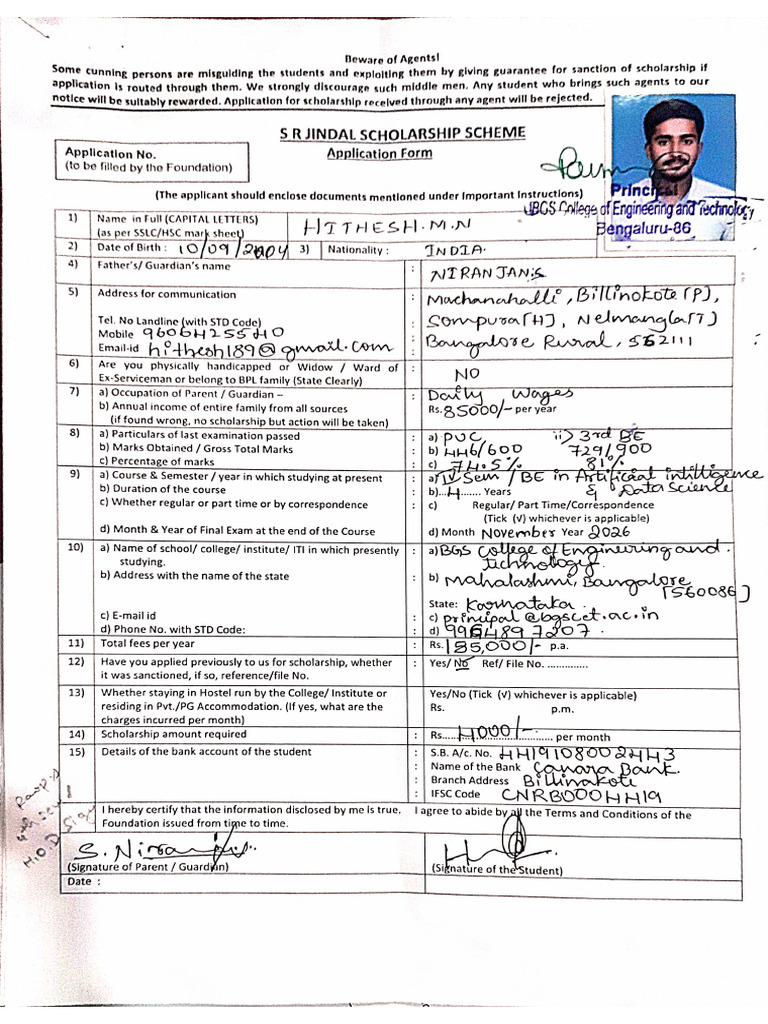 Beware of Agents!
Some cunning persons are misguiding the students and exploiting them by giving guarantee for sanction of scholarship if
application is routed through them. We strongly discourage such middle men. Any student who brings such agents to our
notice will be suitably rewarded. Application for scholarship received through any agent will be rejected.
S R JINDAL SCHOLARSHIP SCHEME
Application Form
Application No.
(to be filled by the Foundation)
(The applicant should enclose documents mentioned under Important Instructions)
Principal
BGS College of Engineering and Technology
Bengaluru-86
1) Name in Full (CAPITAL LETTERS) HITHESH.M.N
(as per SSLC/HSC mark sheet)
2) Date of Birth : 10/09/2004 3) Nationality : INDIA.
4) Father's/ Guardian's name : NIRANJAN.S
5) Address for communication : Machanahalli, Billinokote[P],
Tel. No Landline (with STD Code) : Sompura[H], Nelmangla[T]
Mobile 9606425540
Email-id hithesh189@gmail.com : Bangalore Rural, 562111
6) Are you physically handicapped or Widow / Ward of : NO
Ex-Serviceman or belong to BPL family (State Clearly)
7) a) Occupation of Parent / Guardian – : Daily Wages
b) Annual income of entire family from all sources Rs.85000/- per year
(if found wrong, no scholarship but action will be taken)
8) a) Particulars of last examination passed : a) PUC ii) 3rd BE
b) Marks Obtained / Gross Total Marks : b) 446/600 729/900
c) Percentage of marks : c) 74.5% 81%
9) a) Course & Semester / year in which studying at present : a) IV Sem / BE in Artificial intilligence
b) Duration of the course : b)...4....... Years & Data Science
c) Whether regular or part time or by correspondence : c) Regular/ Part Time/Correspondence
(Tick (√) whichever is applicable)
d) Month & Year of Final Exam at the end of the Course d) Month November Year 2026
10) a) Name of school/ college/ institute/ ITI in which presently : a) BGS College of Engineering and.
studying. technology.
b) Address with the name of the state : b) Mahalashmi, Bangalore
[560086]
State: Karnataka.
c) E-mail id : c) principal@bgscet.ac.in
d) Phone No. with STD Code: : d) 9964897207.
11) Total fees per year : Rs. 185,000/- p.a.
12) Have you applied previously to us for scholarship, whether : Yes/ No Ref/ File No. ..............
it was sanctioned, if so, reference/file No.
13) Whether staying in Hostel run by the College/ Institute or Yes/No (Tick (√) whichever is applicable)
residing in Pvt./PG Accommodation. (If yes, what are the Rs. p.m.
charges incurred per month)
14) Scholarship amount required : Rs....4000/-........ per month
15) Details of the bank account of the student : S.B. A/c. No. 4419108002443
: Name of the Bank Canara Bank.
: Branch Address Billinakote
: IFSC Code CNRB0004419
I hereby certify that the information disclosed by me is true. I agree to abide by all the Terms and Conditions of the
Foundation issued from time to time.
H.O.D Sig
S. Niranjan
(Signature of Parent / Guardian) (Signature of the Student)
Date :